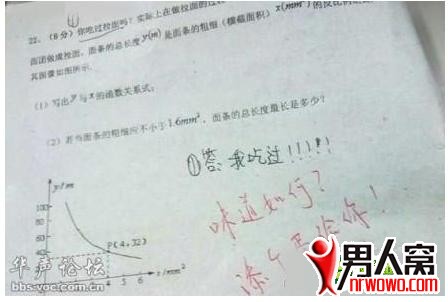 22.（8分）你吃过拉面吗？实际上在做拉面的过
面团做成拉面，面条的总长度y(m)是面条的粗细（横截面积）x(mm²)的反比例函
其图像如图所示.
(1) 写出y与x的函数关系式；
(2) 若当面条的粗细应不小于1.6mm²，面条的总长度最长是多少？
①答：我吃过！！！！！
味道如何？
y/m
100
80
60
40
20
P(4,32)
4 5 6 x/mm²
华声论坛
bbs.voc.com.cn
男人窝
nrwowo.com